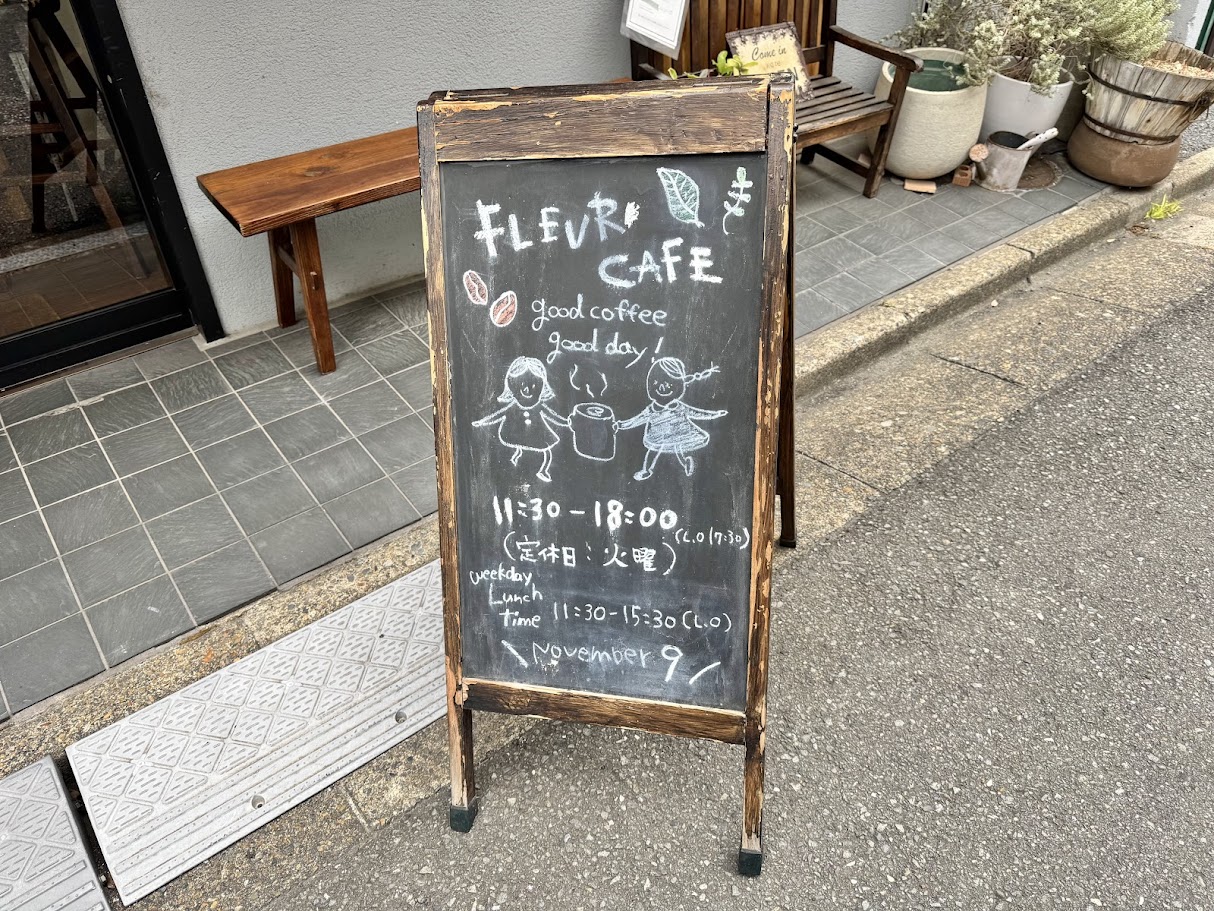 Come in
FLEUR
CAFE
good coffee
good day!
11:30-18:00
(L.O 17:30)
(定休日:火曜)
weekday
Lunch
time 11:30-15:30(L.O)
\ November 9 /